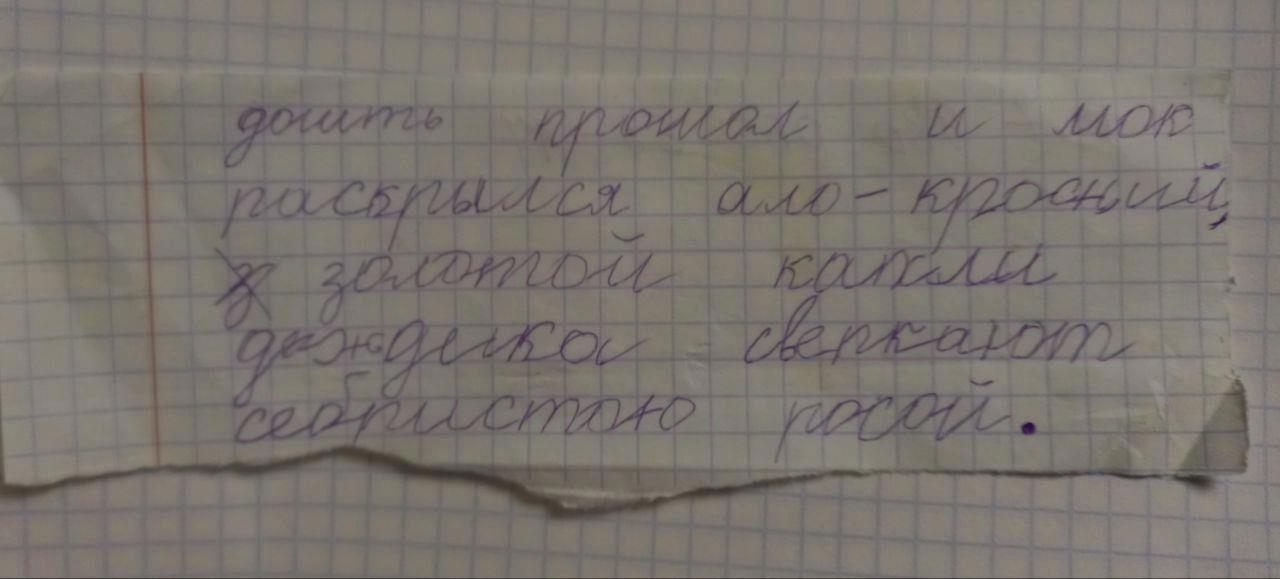 дошть прошол и мок
раскрылся ало-кросний,
золотой капли
дождика сверкают
себристою росой.